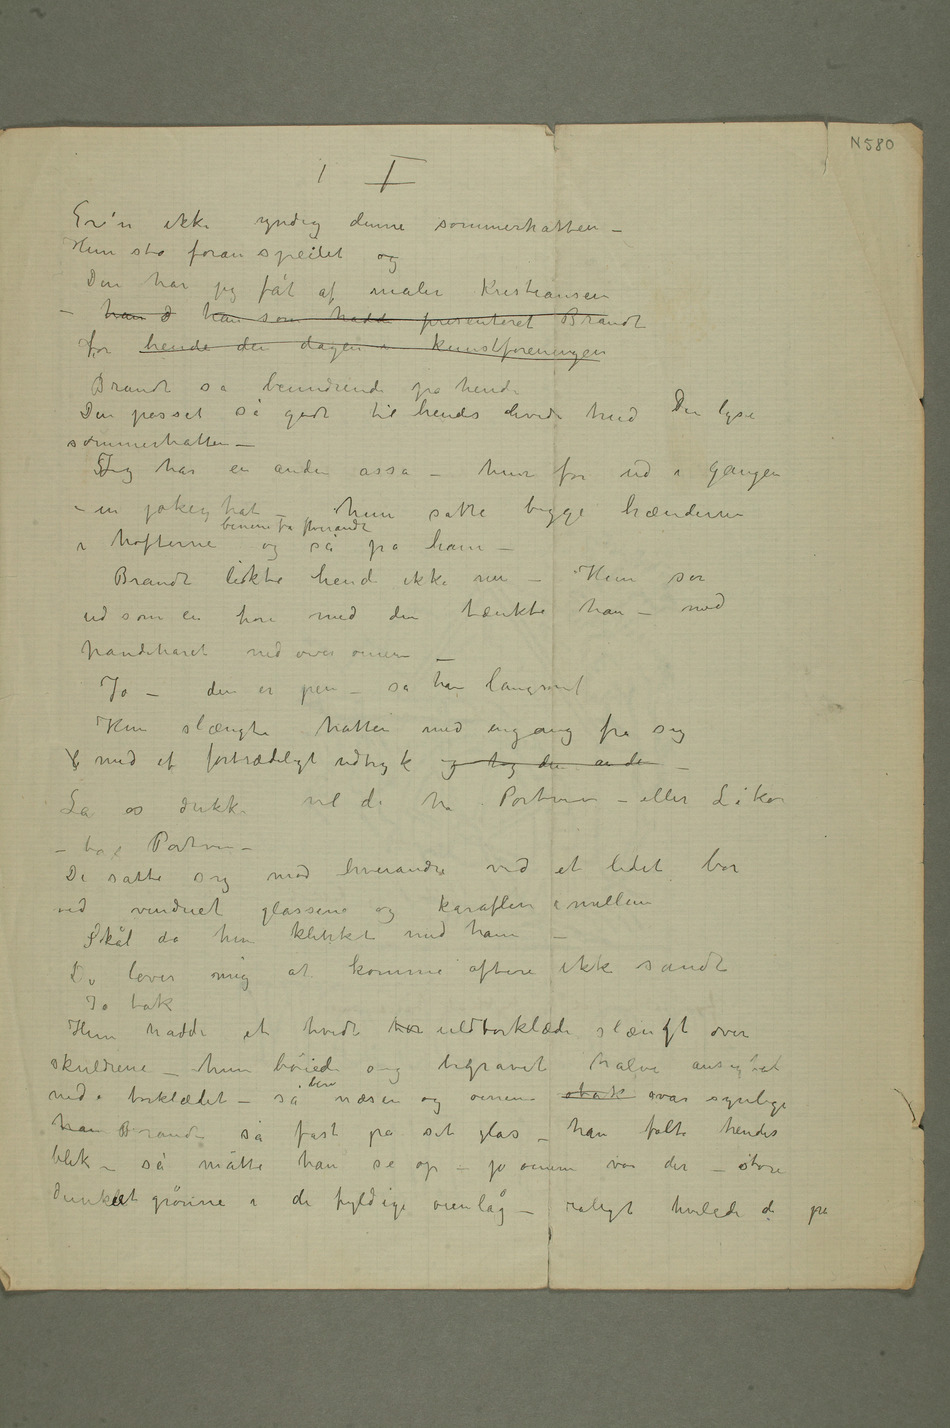 N 580
1 I
Er'n ikke yndig denne sommerhatten –
Hun sto foran speilet og
Den har jeg fåt af maler Kristiansen
– han d han som hadde presenteret Brandt
for hende den dagen i kunstforeningen
Brandt så beundrende på hende
Den passet så godt til hendes hvide hud Den lyse
sommerhatten –
Jeg har en anden assa – hun for ud i gangen
– en jokeyhat – hun satte begge hænderne
benene fra hverandre
i hofterne og så på ham –
Brandt likte hende ikke nu – Hun ser
ud som en hore med den tænkte han – med
pandehåret ned over øinene –
Jo – den er pen – sa han langsomt
Hun slængte hatten med engang fra sig
med et fortrædeligt udtryk og tog den anden –
La os drikke vil de ha Portvin – eller Likør
– ta Portvin –
De satte sig mod hverandre ved et lidet bor
ved vinduet glassene og karaflen imellem
Skål da hun klinket med ham –
Du lover mig at komme oftere ikke sandt
Jo tak
Hun hadde et hvidt tør uldtørklæde slængt over
skuldrene – hun bøiede sig begravet halve ansigtet
ned i tørklædet – så bare næsen og øinene stak var synlige
han Brandt så fast på sit glas – han følte hendes
blik – så måtte han se op – jo øinene var der – store
dunkelt grønne i de fyldige øienlåg – roligt hvilede de på